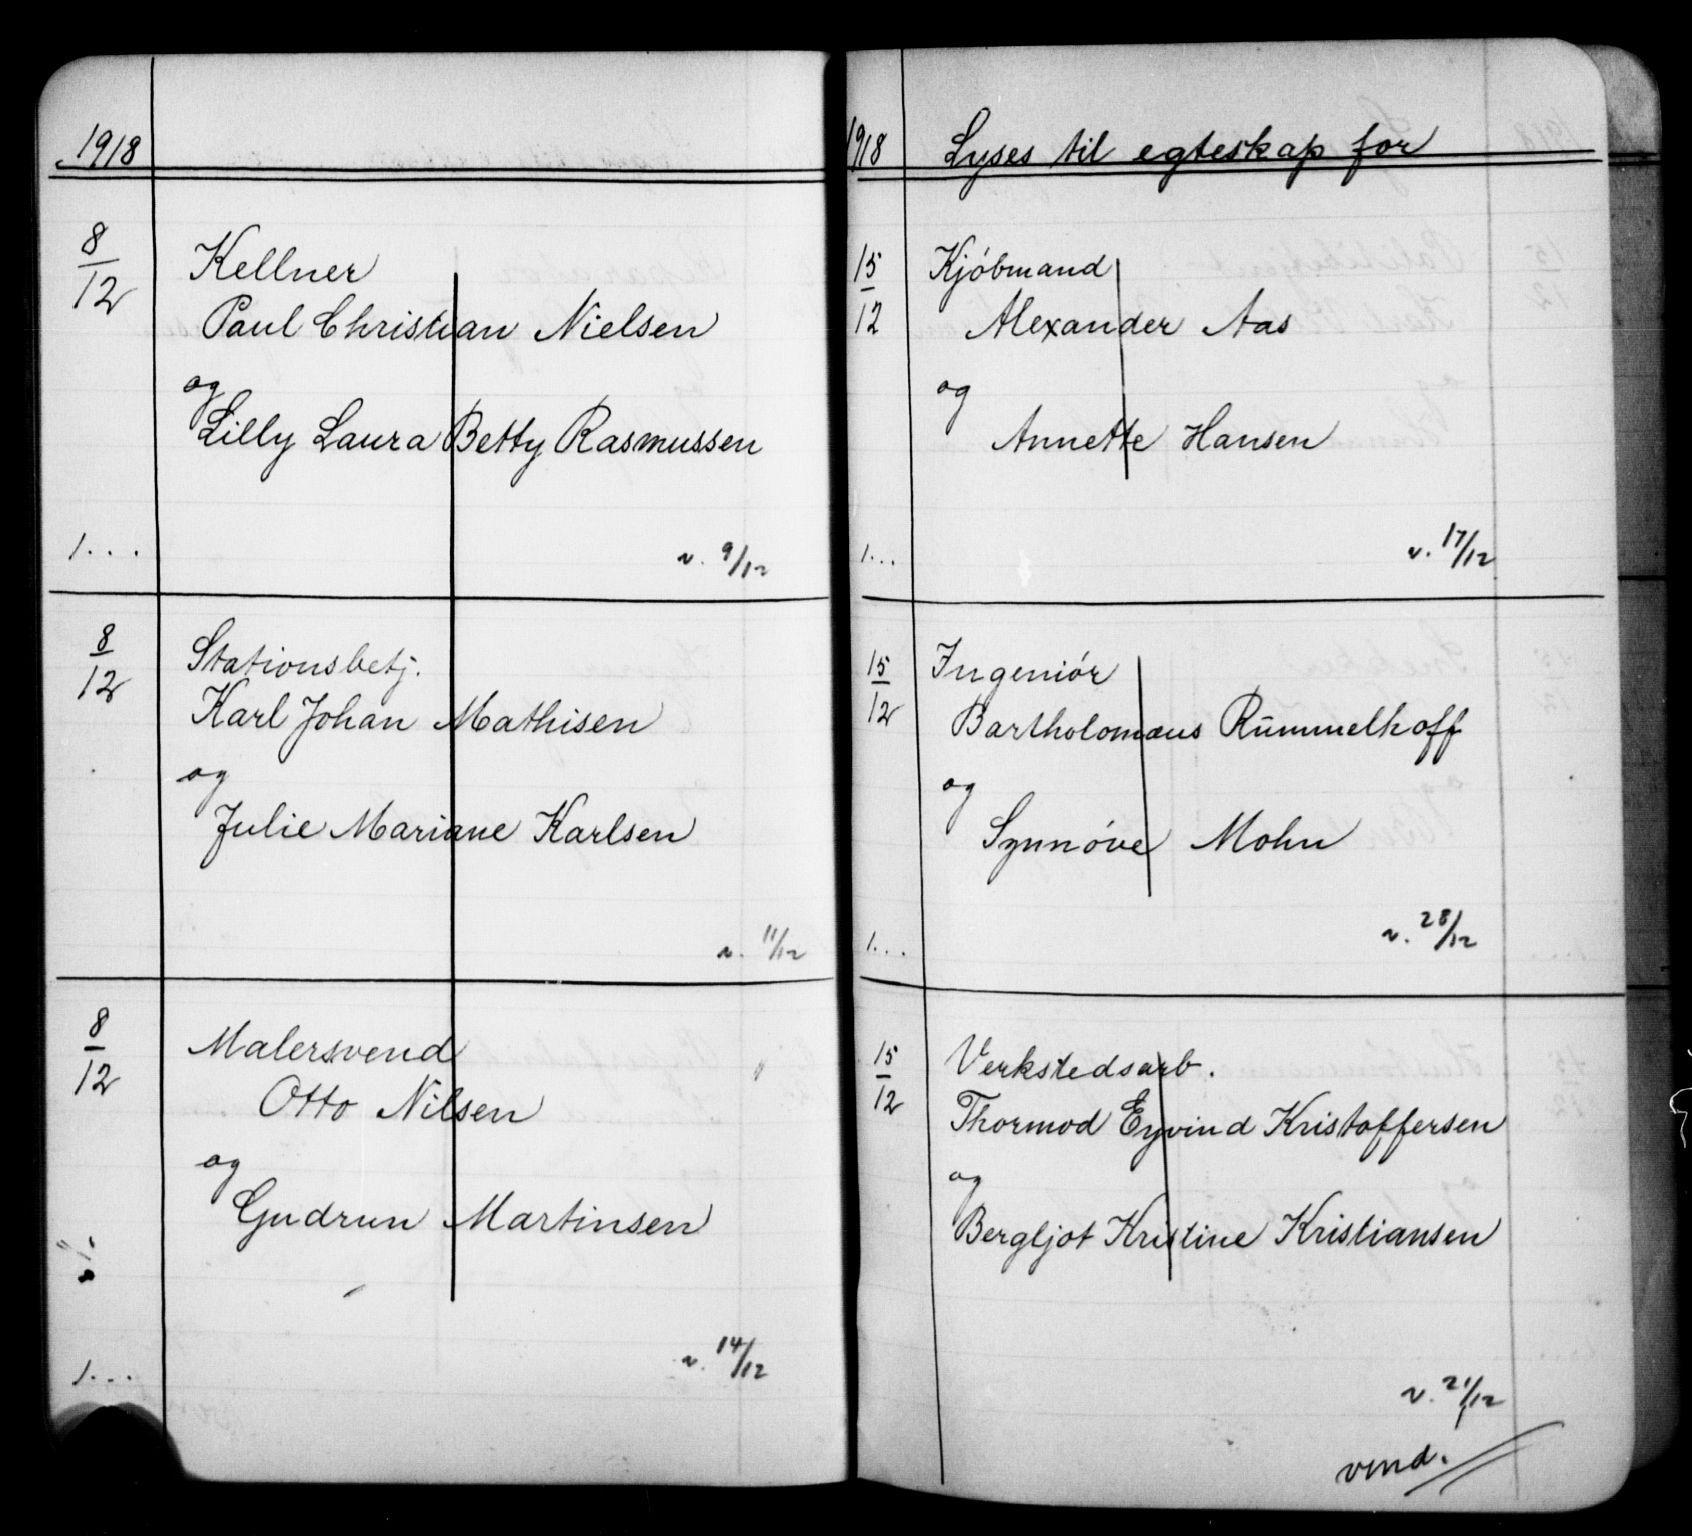 1918
8/12
Kellner
Paul Christian Nielsen
og
Lilly Laura Betty Rasmussen
1...
v. 9/12
8/12
Stationsbetj.
Karl Johan Mathisen
og
Julie Mariane Karlsen
v. 11/12
8/12
Malersvend
Otto Nilsen
og
Gudrun Martinsen
1...
v. 14/12
1918 Lyses til egteskap for
15/12
Kjóbmand
Alexander Aas
og
Annette Hansen
1...
v. 17/12
15/12
Ingeniór
Bartholomæus Rūmmelhoff
og
Synnóve Mohn
1...
v. 28/12
15/12
Verkstedsarb.
Thormod Eyvind Kristoffersen
og
Bergljot Kristine Kristiansen
v. 21/12
vend.